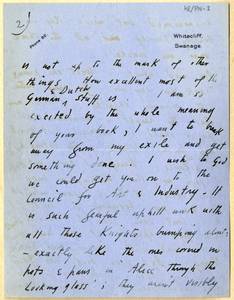 2)
48/PN-2
Phone 80.
Whitecliff,
Swanage.
is not up to the mark of the
things. How excellent most of the
& Dutch
German stuff is. I am so
excited by the whole meaning
of your book; I want to break
away from my exile and get
something done. I wish to God
we could get you on to the
Council for Art & Industry – It
is such fearful uphill work with
all those Knights bumping about
– exactly like the men covered in
pots & pans in 'Alice through the
Looking glass'; they aren't visibly